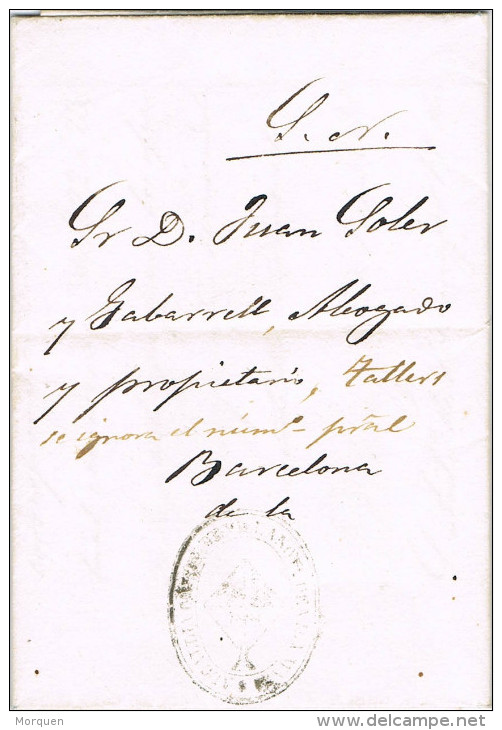 S. N.
Sr D. Juan Soler
y Gabarrell, Abogado
y propietario, Tallers
se ignora el núm.º pral
Barcelona
de la
Morquen
www.delcampe.net